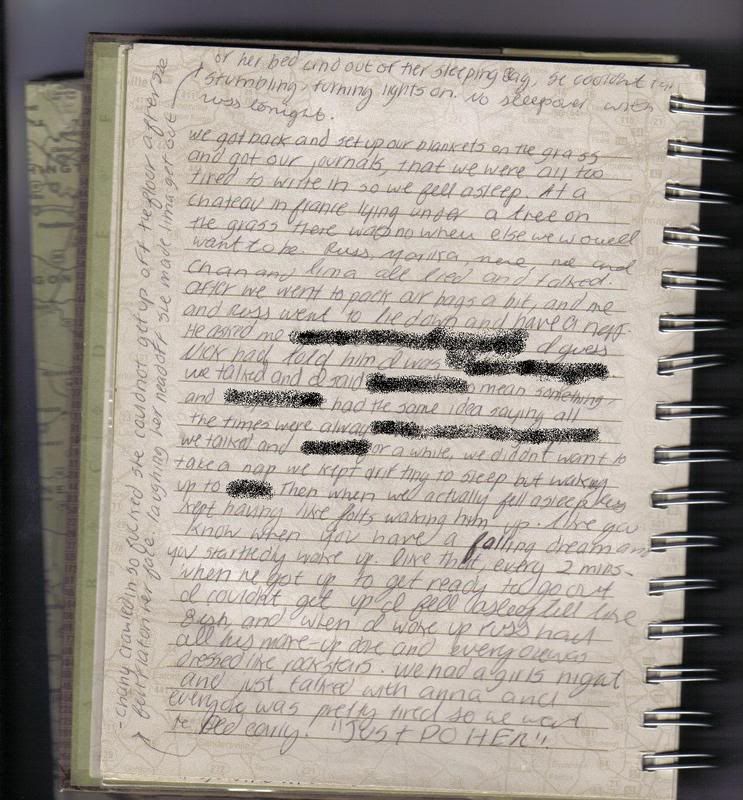 or her bed and out of her sleeping Bag, se couldnt
stumbling, turning lights on. No sleepover with
russ tonight.
we got back and set up our blankets on the grass
and got our journals, that we were all too
tired to write in so we fell asleep. At a
chateau in france lying under a tree on
the grass there was no where else we would
want to be. Russ, Marika, me and
Chan and lima all lied and talked.
After we went to pack air bags a bit, and me
and Russ went to lie down and have a nap.
He asked me I guess
Nick had told him I was
we talked and I said o mean something,
and had the same idea saying all
the times were always
we talked and or a while, we didnt want to
take a nap we kept drifting to sleep but waking
up to Then when we actually fell asleep Russ
kept having like jolts waking him up. Like you
know when you have a falling dream and
you startedly wake up. like that every 2 mins-
when he got up to get ready to go out
I couldnt get up I fell asleep till like
8ish and when I woke up russ had
all his make-up done and everyone was
dressed like rockstars. we had a girls night
and just talked with anna and
everyone was pretty tired so we went
to Bed early. "JUST DO HER".
-Chany crawled in so fucked she could not get up off the floor after she
fell flat on her face. laughing her head off she made lima get out